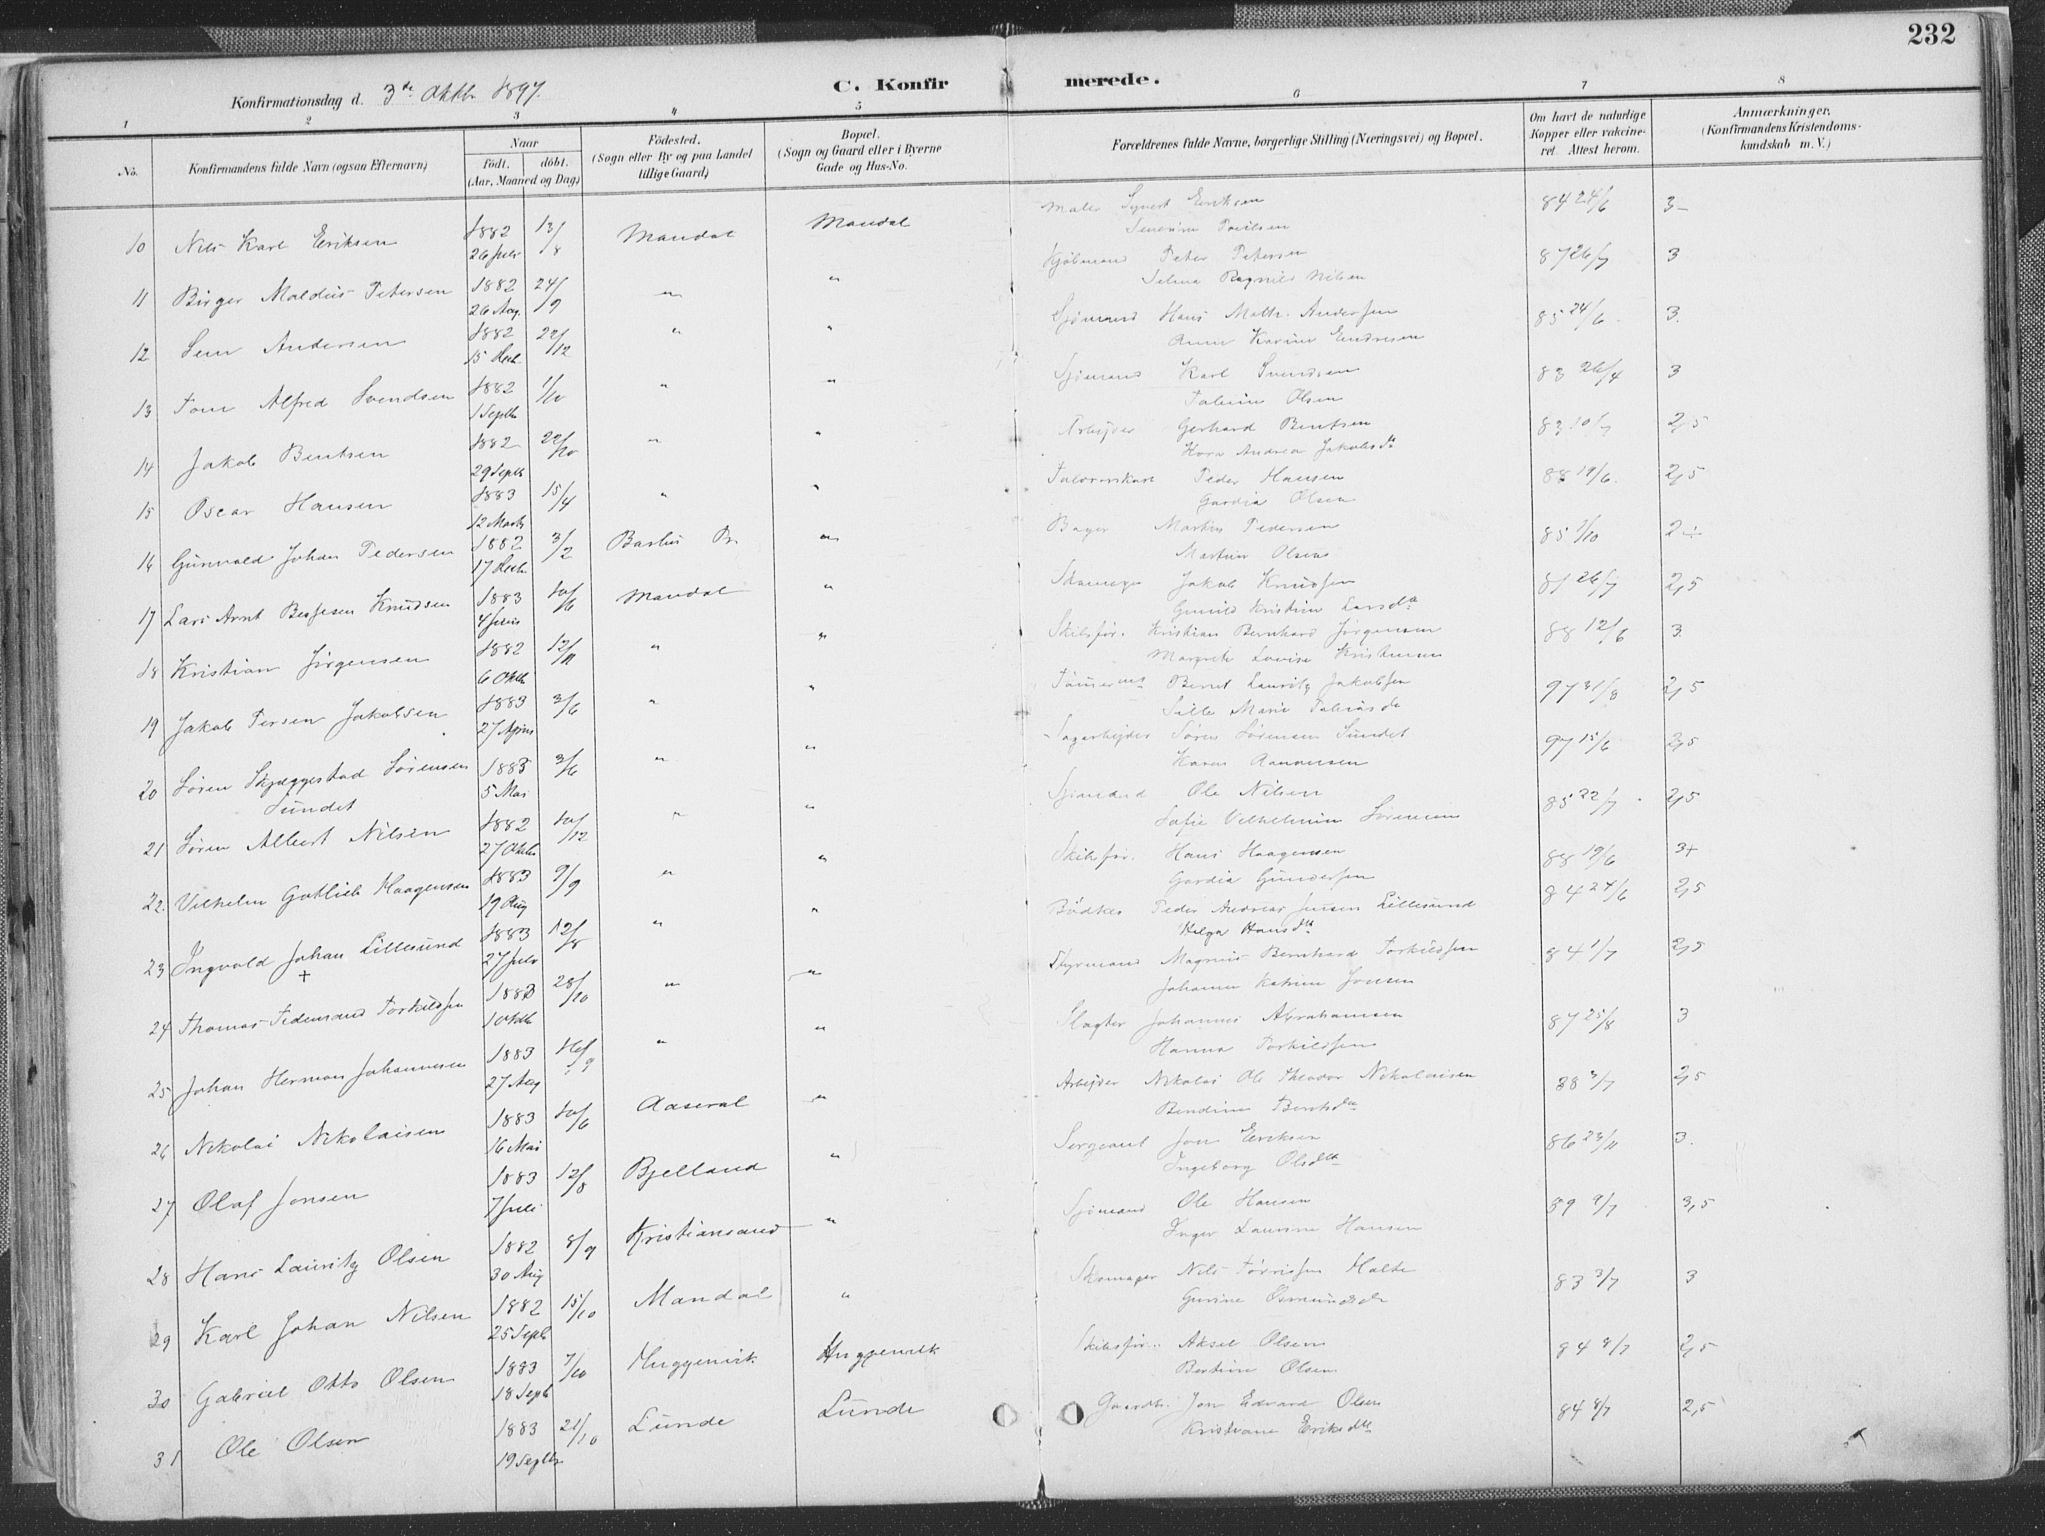 232
Konfirmationsdag d. 3de Oktbr 1897.
C. Konfirmerede.
1 2 3 4 5 6 7 8
No. Konfirmandens fulde Navn (ogsaa Efternavn) Naar födt. döbt. (Aar, Maaned og Dag) Födested. (Sogn eller By og paa Landet tillige Gaard) Bopæl. (Sogn og Gaard eller i Byerne Gade og Hus-No. Forældrenes fulde Navne, borgerlige Stilling (Næringsvei) og Bopæl. Om havt de naturlige Kopper eller vakcineret. Attest herom. Anmærkninger. (Konfirmandens Kristendomskundskab m. V.)
10 Nils Karl Eriksen 1882 26 Juli 13/8 Mandal Mandal Maler Syvert Eriksen 84 24/6 3-
11 Birger Maldus Petersen 1882 26 Aug. 24/9 " " Peter Petersen 87 26/7 3
Selma Ragnild Nilsen
12 Sem Andersen 1882 15 Decb 22/12 " " Sjömand Hans Math. Andersen 85 24/6 3.
Anne Karine Endresen
13 Tom Alfred Svendsen 1882 1 Septb 1/10 " " Sjömand Karl Svendsen 83 26/4 3
Olsen
14 Jakob Bentsen 1882 29 Septb 22/10 " " Arbejder Gerhard Bentsen 83 10/7 2,5
Andrea Jakobsdt
15 Oscar Hansen 1883 12 Marts 15/4 " " Peder Hansen 88 19/6 2,5
Gardia Olsen
16 Gunvald Johan Pedersen 1882 17 Decb 3/2 " Bager Martin Pedersen 85 1/10 2÷
Olsen
17 Lars Arnt Knudsen 1883 4 Juni 10/6 Mandal " Jakob Knudsen 81 26/7 2,5
Gunild Kristine Larsdtr
18 Kristian Jörgensen 1882 6 Oktb 12/11 " " Skibsför. Kristian Bernhard Jörgensen 88 12/6 3.
Margrete Lovise Kristensen
19 Jakob Tersen Jakobsen 1883 27 April 3/6 " " Bernt Lauritz Jakobsen 97 31/8 2,5
Sille Marie
20 Sören Skjæggestad Sörensen Sundet 1883 5 Mai 3/6 " " Sagarbejder Sören Sörensen Sundet 97 15/6 2,5
Karen Aanensen
21 Sören Albert Nilsen 1882 27 Oktb 10/12 " " Sjömand Ole Nilsen 85 22/7 2,5
Sofie Vilhelmine Sörensen
22. Vilhelm Gotlieb Haagensen 1883 19 Aug 9/9 " " Skibsför. Hans Haagensen 88 19/6 3+
Gardia Gundersen
23 Ingvald Johan Lillesund 1883 27 Juli 12/8 " " Bödker Peder Andreas Jensen Lillesund 84 24/6 2,5
+ Helga Hansdtr
24 Thomas Tidemand Torkildsen 1883 1 Oktb 28/10 " " Styrmand Magnus Bernhard Torkildsen 84 1/7 2,5
Johanne Katrine Jonsen
25 Johan Herman Johannesen 1883 27 Aug " " Slagter Johannes Abrahamsen 87 25/8 3
Hanna Torkildsen
26 Nikolai Nikolaisen 1883 16 Mai 10/6 Aaseral " Arbejder Nikolai Ole Theodor Nikolaisen 88 3/7 2,5
Bendine Berntsdtr
27 Olaf Jonsen 1883 7 Juli 12/8 Bjelland " Sergeant Jon Eriksen 86 23/11 3.
Ingeborg Olsdtr
28 Hans Lauritz Olsen 1882 30 Aug 8/9 Kristiansand " Sjömand Ole Hansen 89 9/7 3,5
Inger Laurine Hansen
29 Karl Johan Nilsen 1882 25 Septb 15/10 Mandal " Skomager Nils Törrissen Holte 83 3/7 3
Gurine Osmundsdtr
30 Gabriel Otto Olsen 1883 18 Septb 7/10 Huggenvik Huggenvik Skibsför. Aksel Olsen 84 8/7 2,5
Bertine Olsen
31 Ole Olsen 1883 19 Septbr 21/10 Lunde Lunde Gaardbr. Jon Edvard Olsen 84 8/7 2,5
Kristiane Eriksdtr